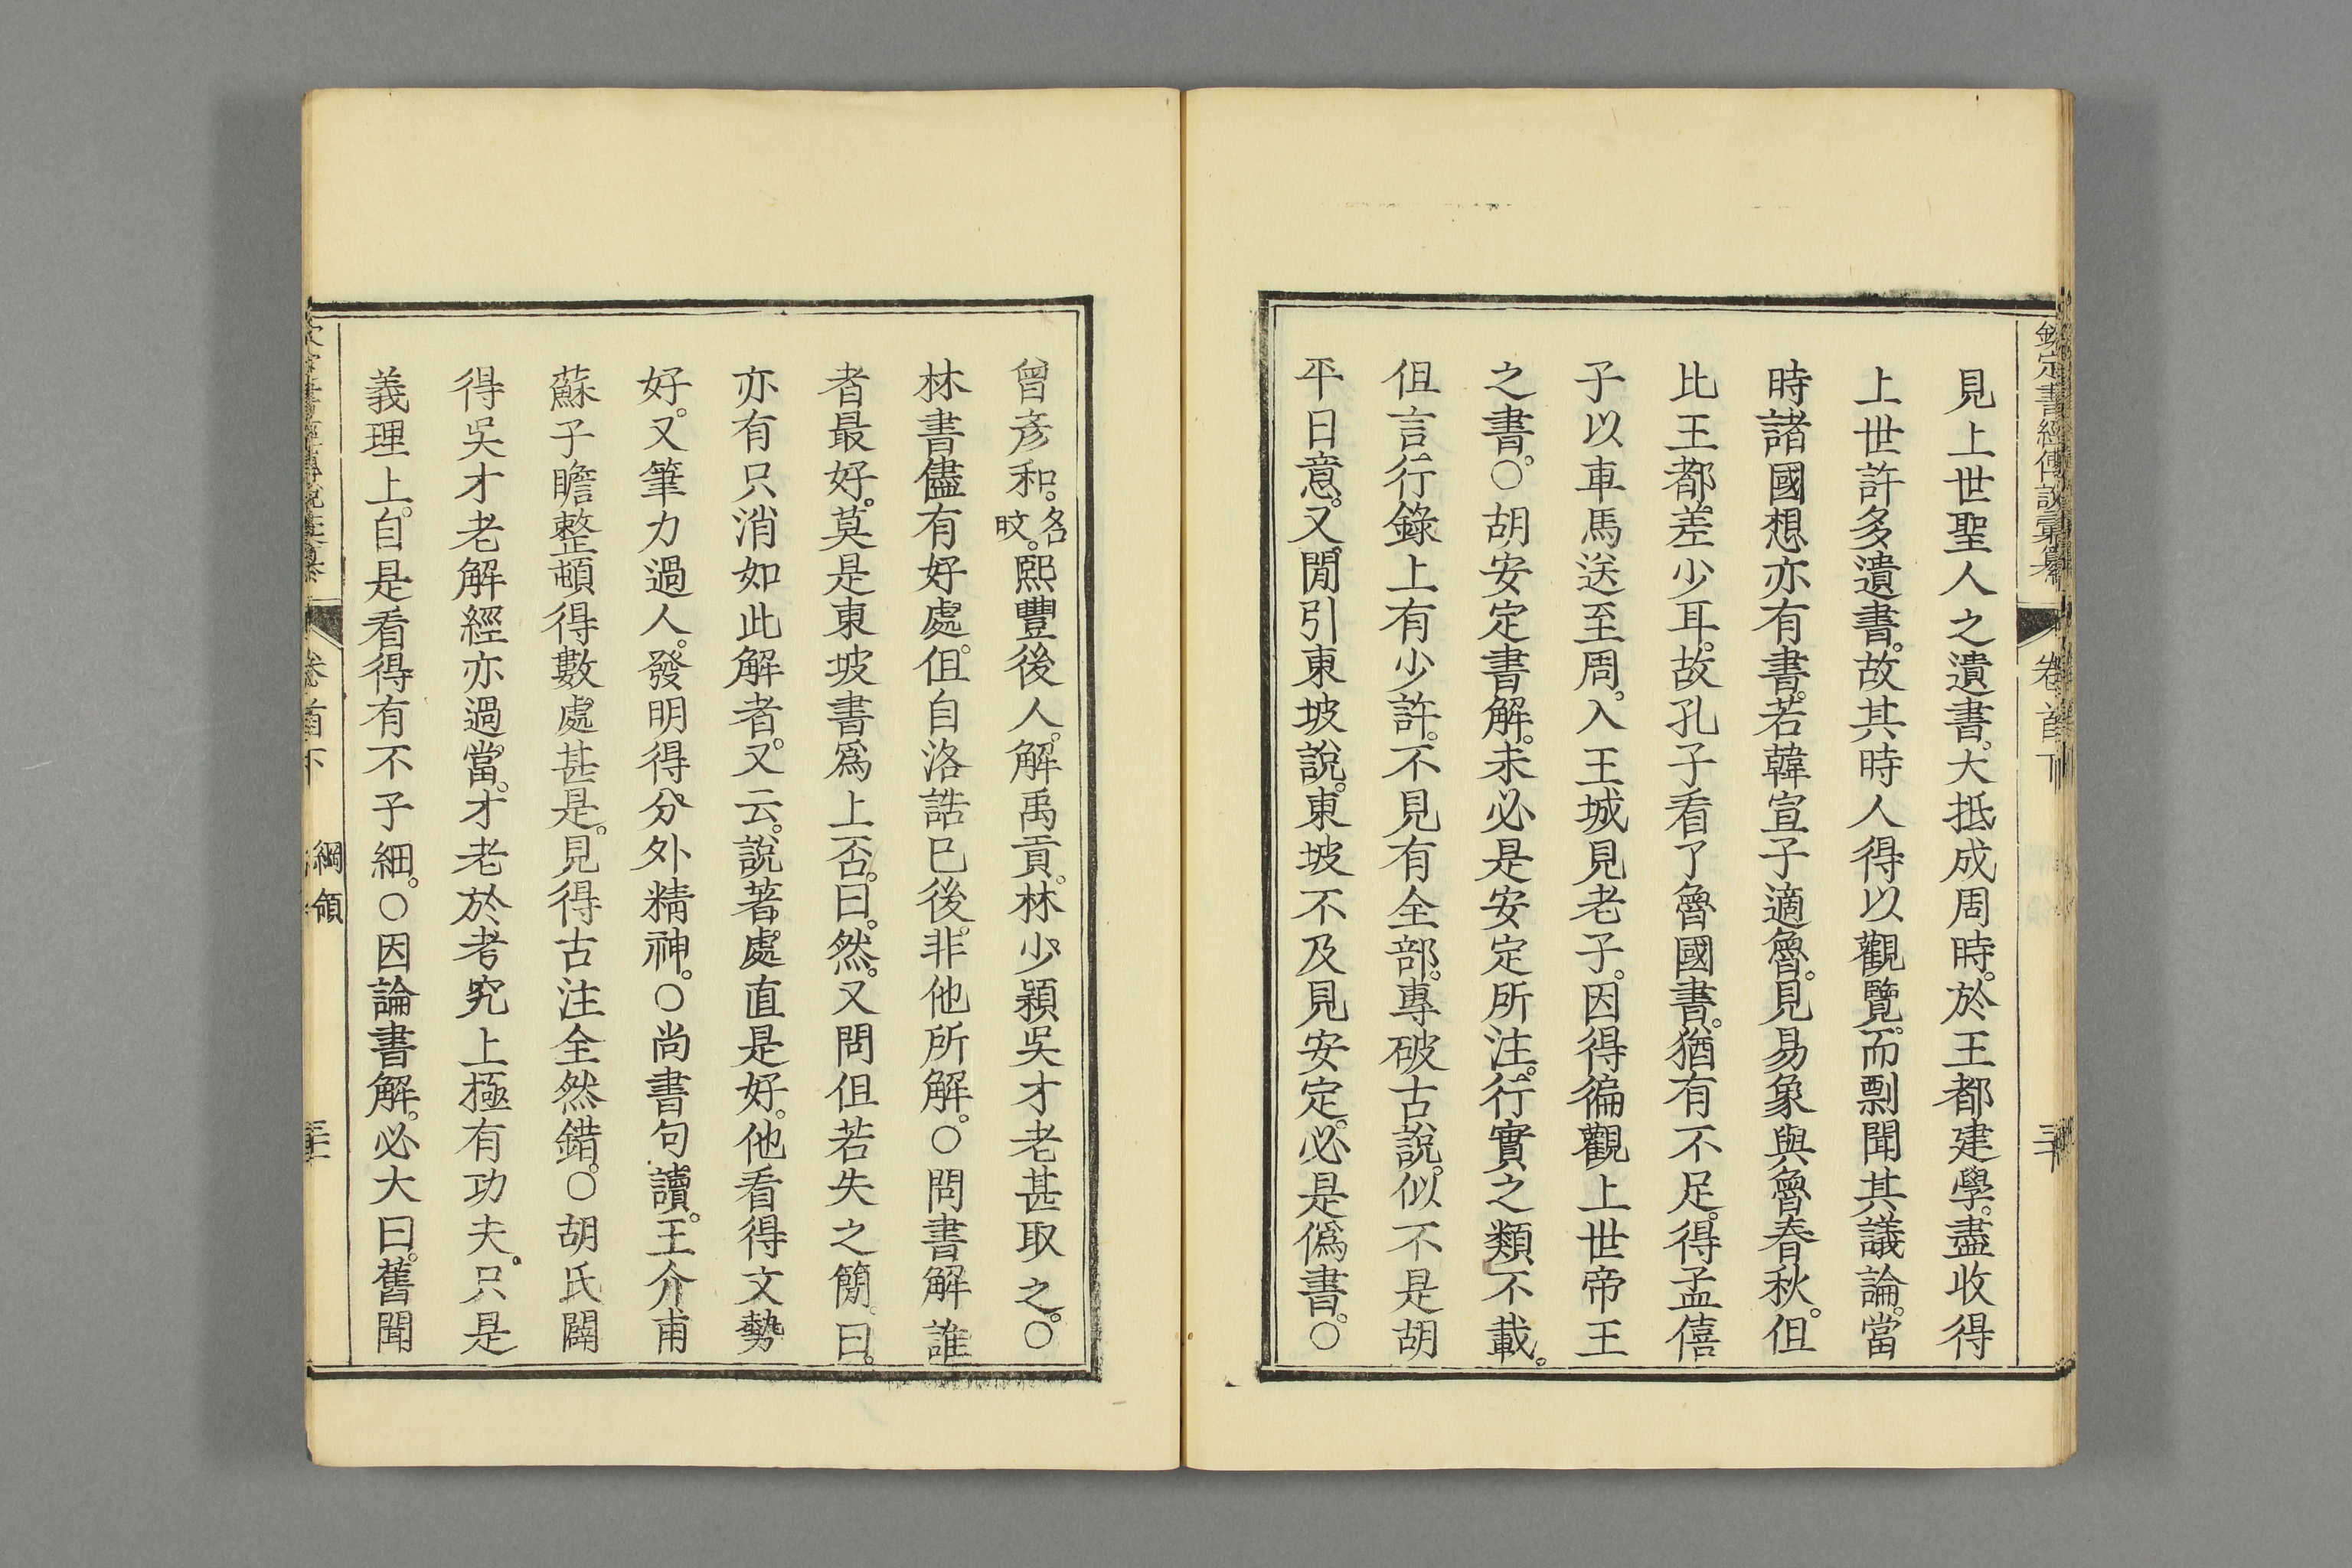 欽定書經傳說彙纂 卷首下 三十
見上世聖人之遺書。大抵成周時。於王都建學。盡收得
上世許多遺書。故其時人得以觀覽。而剽聞其議論。當
時諸國想亦有書。若韓宣子適魯。見易象與魯春秋。但
比王都差少耳。故孔子看了魯國書。猶有不足。得孟僖
子以車馬送至周。入王城見老子。因得徧觀上世帝王
之書。○胡安定書解。未必是安定所注。行實之類不載。
但言行錄上有少許。不見有全部。專破古說。似不是胡
平日意。又閒引東坡說。東坡不及見安定。必是僞書。○
曾彥和。名
旼。熙豐後人。解禹貢。林少穎吳才老甚取之。○
林書儘有好處。但自洛誥已後。非他所解。○問書解誰
者最好。莫是東坡書爲上否。曰。然。又問但若失之簡。曰。
亦有只消如此解者。又云。說著處直是好。他看得文勢
好。又筆力過人。發明得分外精神。○尚書句讀。王介甫
蘇子瞻整頓得數處甚是。見得古注全然錯。○胡氏闢
得吳才老解經亦過當。才老於考究上極有功夫。只是
義理上。自是看得有不子細。○因論書解。必大曰。舊聞
卷首下 綱領